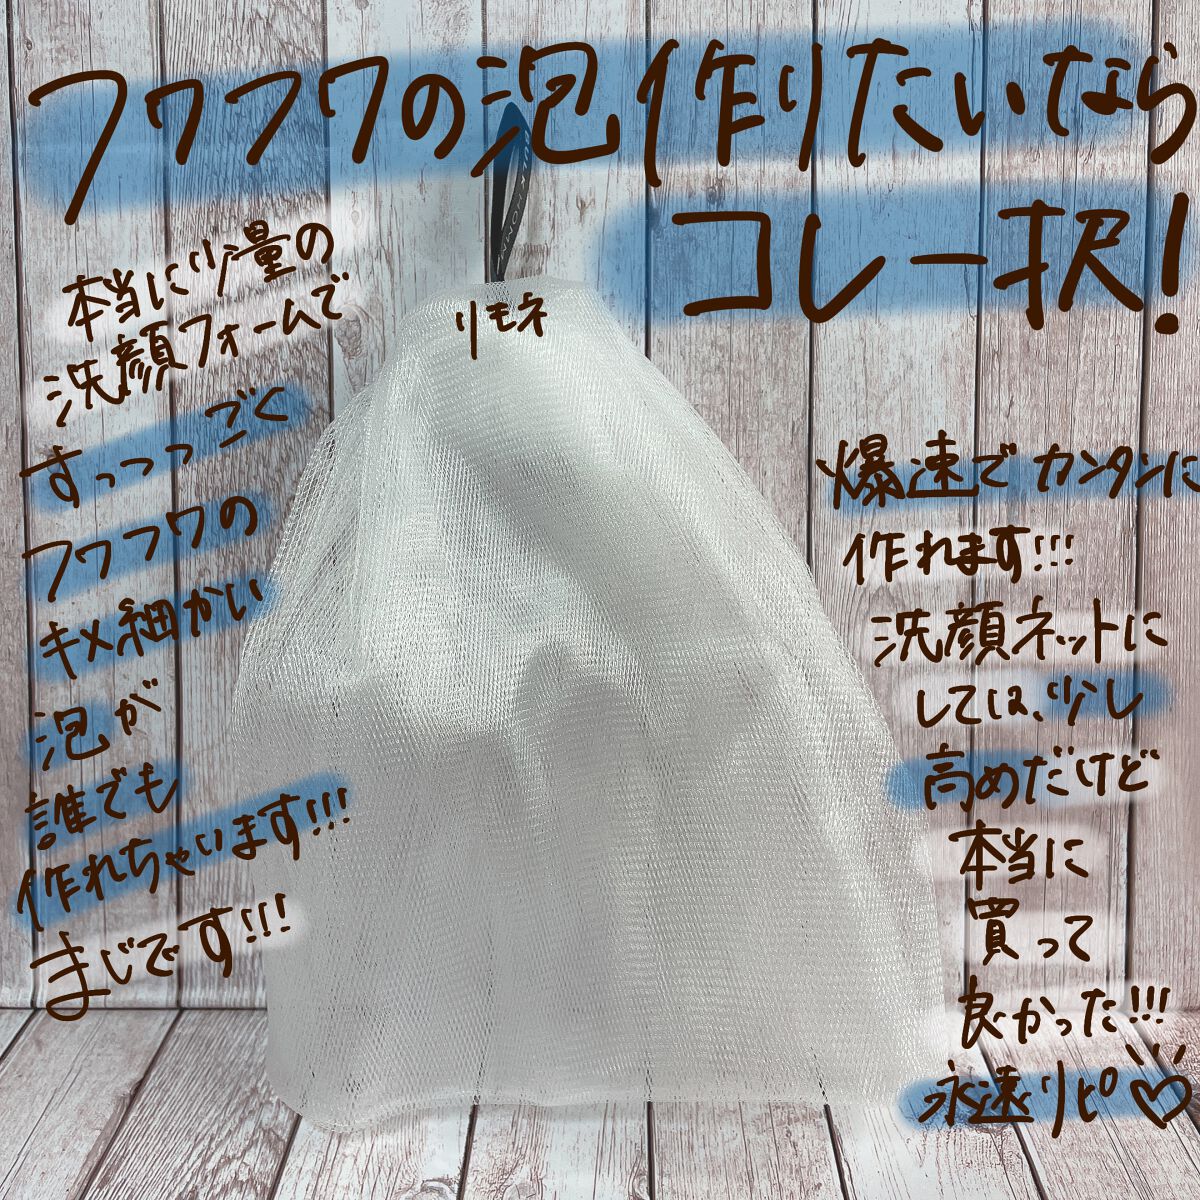 フワフワの泡作りたいなら
コレ一択!
本当に少量の
洗顔フォームで
すっっっごく
フワフワの
キメ細かい
泡が
誰でも
作れちゃいます!!!
まじです!!!
リモネ
爆速でカンタンに
作れます!!!
洗顔ネットに
しては、少し
高めだけど
本当に
買って
良かった!!!
永遠リピ♡